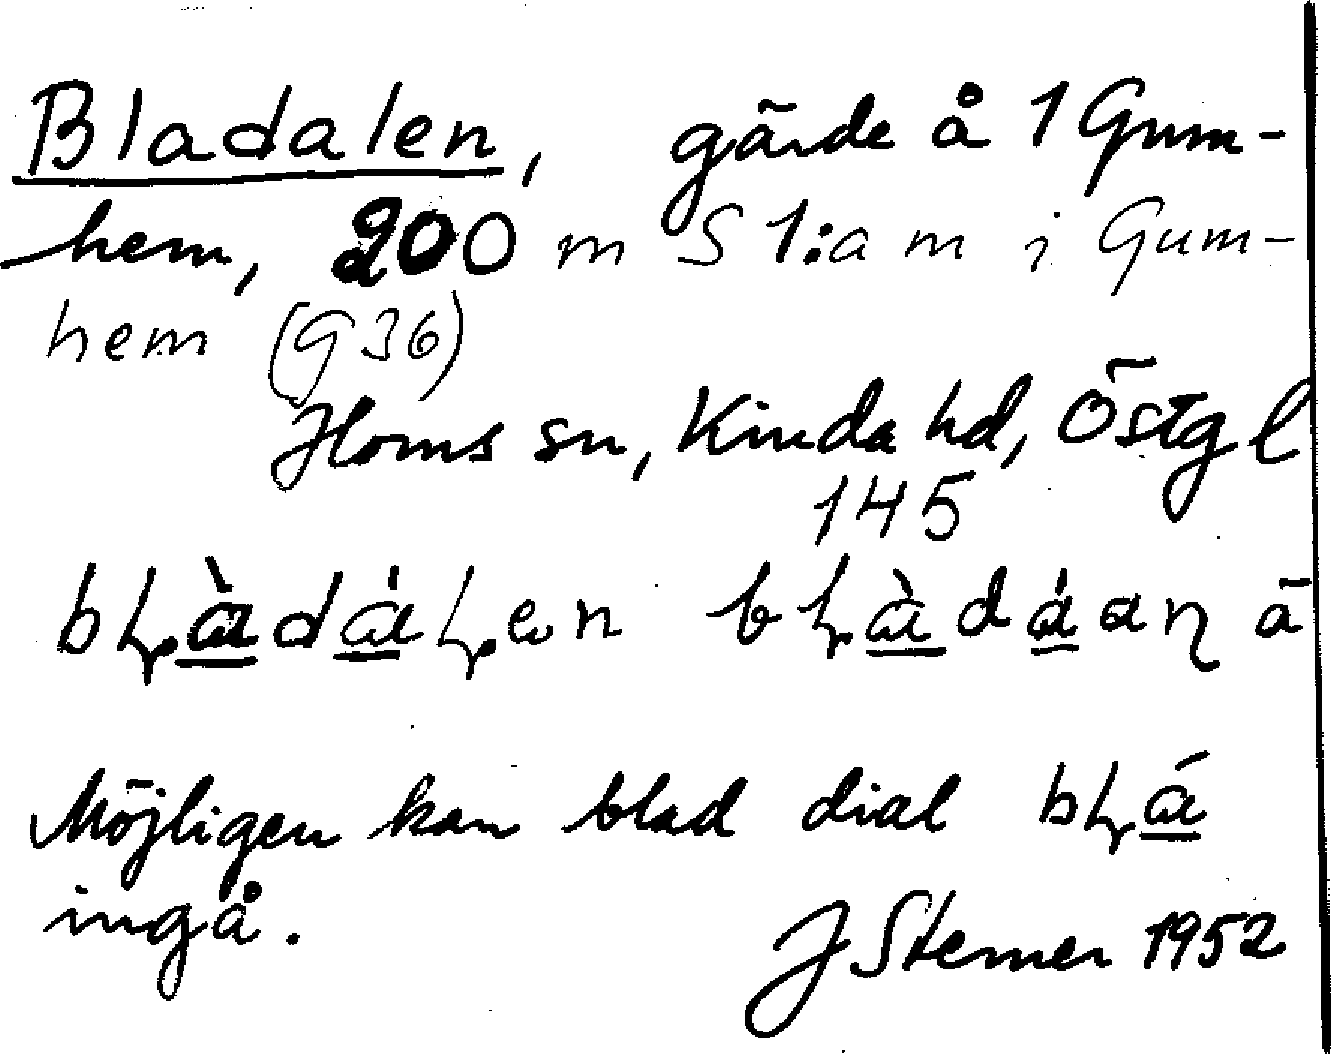 Bladalen, gärde å 1 Gum-
hem, 200 m S 1:a m i Gum-
hem (G 36)
Horns sn, Kinda hd, Östg l
145
Möjligen kan blad dial
ingå.
J Sterner 1952